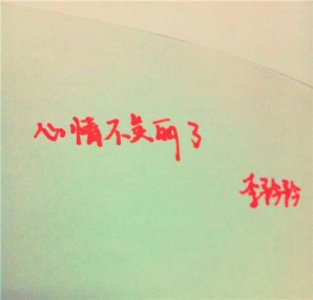 心情不美丽了
李玲玲